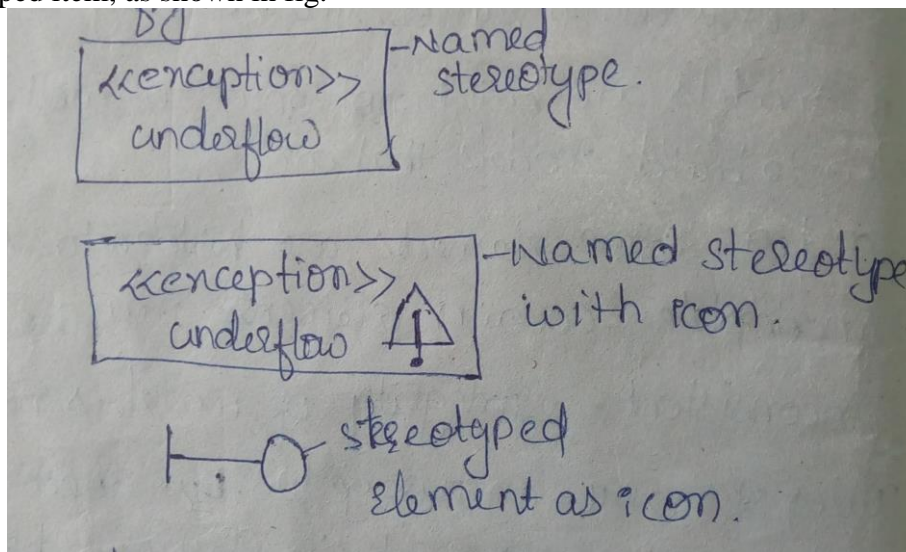 ped item, as shown in fig.
<<exception>>
underflow
-Named
stereotype.
<<exception>>
underflow
!
-Named stereotype
with icon.
stereotyped
Element as icon.